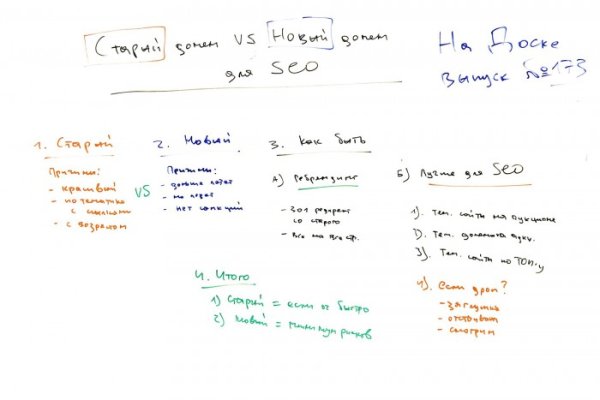 Старый домен VS Новый домен
для SEO
На Доске
выпуск №173
1. Старый
Причины:
- красивый
- по тематике
с ссылками
- с возрастом
VS
2. Новый
Причины:
- дольше
- нет санкций
3. Как быть
А) Ребрендинг
- 301 редирект
со старого
- все на все стр.
Б) Лучше для SEO
1). Тем. сайты на аукционе
2). Тем. домены аукц.
3). Тем. сайты по ТОП-у
4). если дроп?
- загрузка
- отстаиваем
- смотрим
4. Итого
1) Старый = если оч быстро
2) Новый = минимум рисков